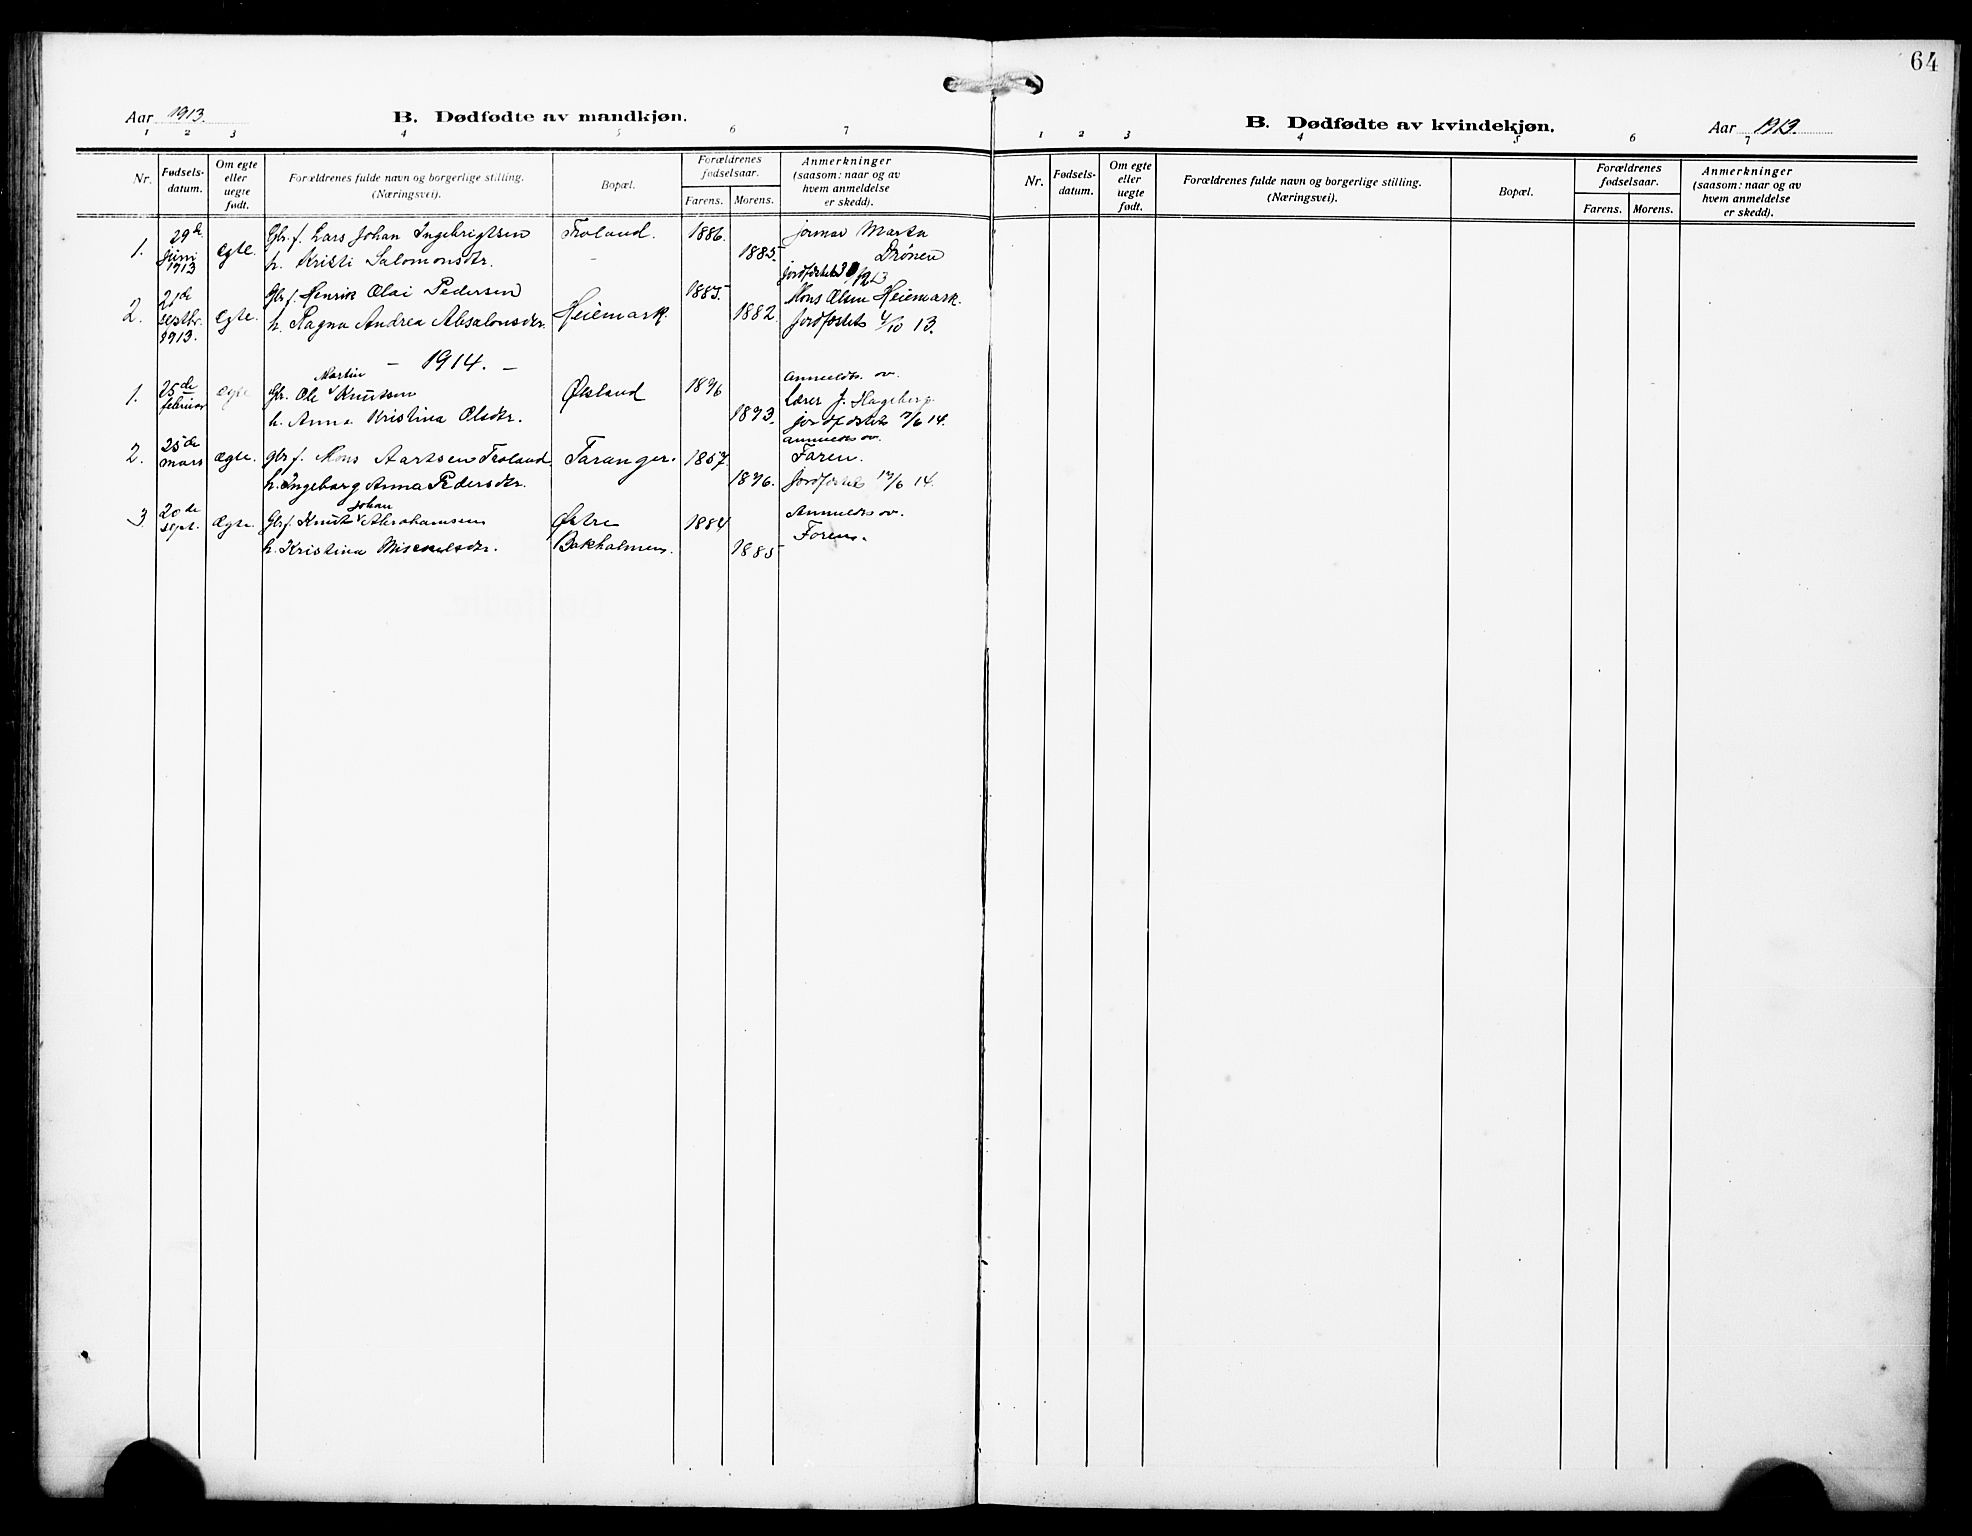 64
Aar 1913.
B. Dødfødte av mandkjøn.
1 2 3 4 5 6 7
Nr.
Fødsels-
datum.
Om egte
eller
uegte
født.
Forældrenes fulde navn og borgerlige stilling.
(Næringsvei).
Bopæl.
Forældrenes
fødselsaar.
Farens. Morens.
Anmerkninger
(saasom: naar og av
hvem anmeldelse
er skedd).
1.
29de
juni
1913
egte.
Gbr. f. Lars Johan Ingebrigtsen
h. Kristi Salomonsdtr.
Troland.
1886.
1885.
jormor Marta
Drønen
2.
21de
septbr.
1913.
egte.
Gbr f. Henrik Olai Pedersen
h. Ragna Andrea Absalonsdtr.
Heiemark.
1885.
1882.
Mons Olsen Heiemark.
Jordfæstet 4/10 13.
– 1914. –
1.
25de
februar
ægte
Martin
Gbr. Ole Knutsen
h. Anna Kristina Olsdtr.
Økland
1876
1873.
anmeldt av.
Lærer J. Hageberg.
jordfæstet 7/6 14.
2.
25de
mars
ægte.
gbr f. Mons Aartsen Troland
h. Ingeborg Anna Pedersdtr.
Taranger.
1857.
1876.
anmeldt av.
Faren.
Jordfæstet 17/6 14.
3
20de
sept.
ægte.
Johan
Gbrf. Knut Abrahamsen
h. Kristina
Østre
Bakholmen.
1884
1885
Anmeldt av.
Faren.
B. Dødfødte av kvindekjøn.
Aar 1913.
1 2 3 4 5 6 7
Nr.
Fødsels-
datum.
Om egte
eller
uegte
født.
Forældrenes fulde navn og borgerlige stilling.
(Næringsvei).
Bopæl.
Forældrenes
fødselsaar.
Farens. Morens.
Anmerkninger
(saasom: naar og av
hvem anmeldelse
er skedd).